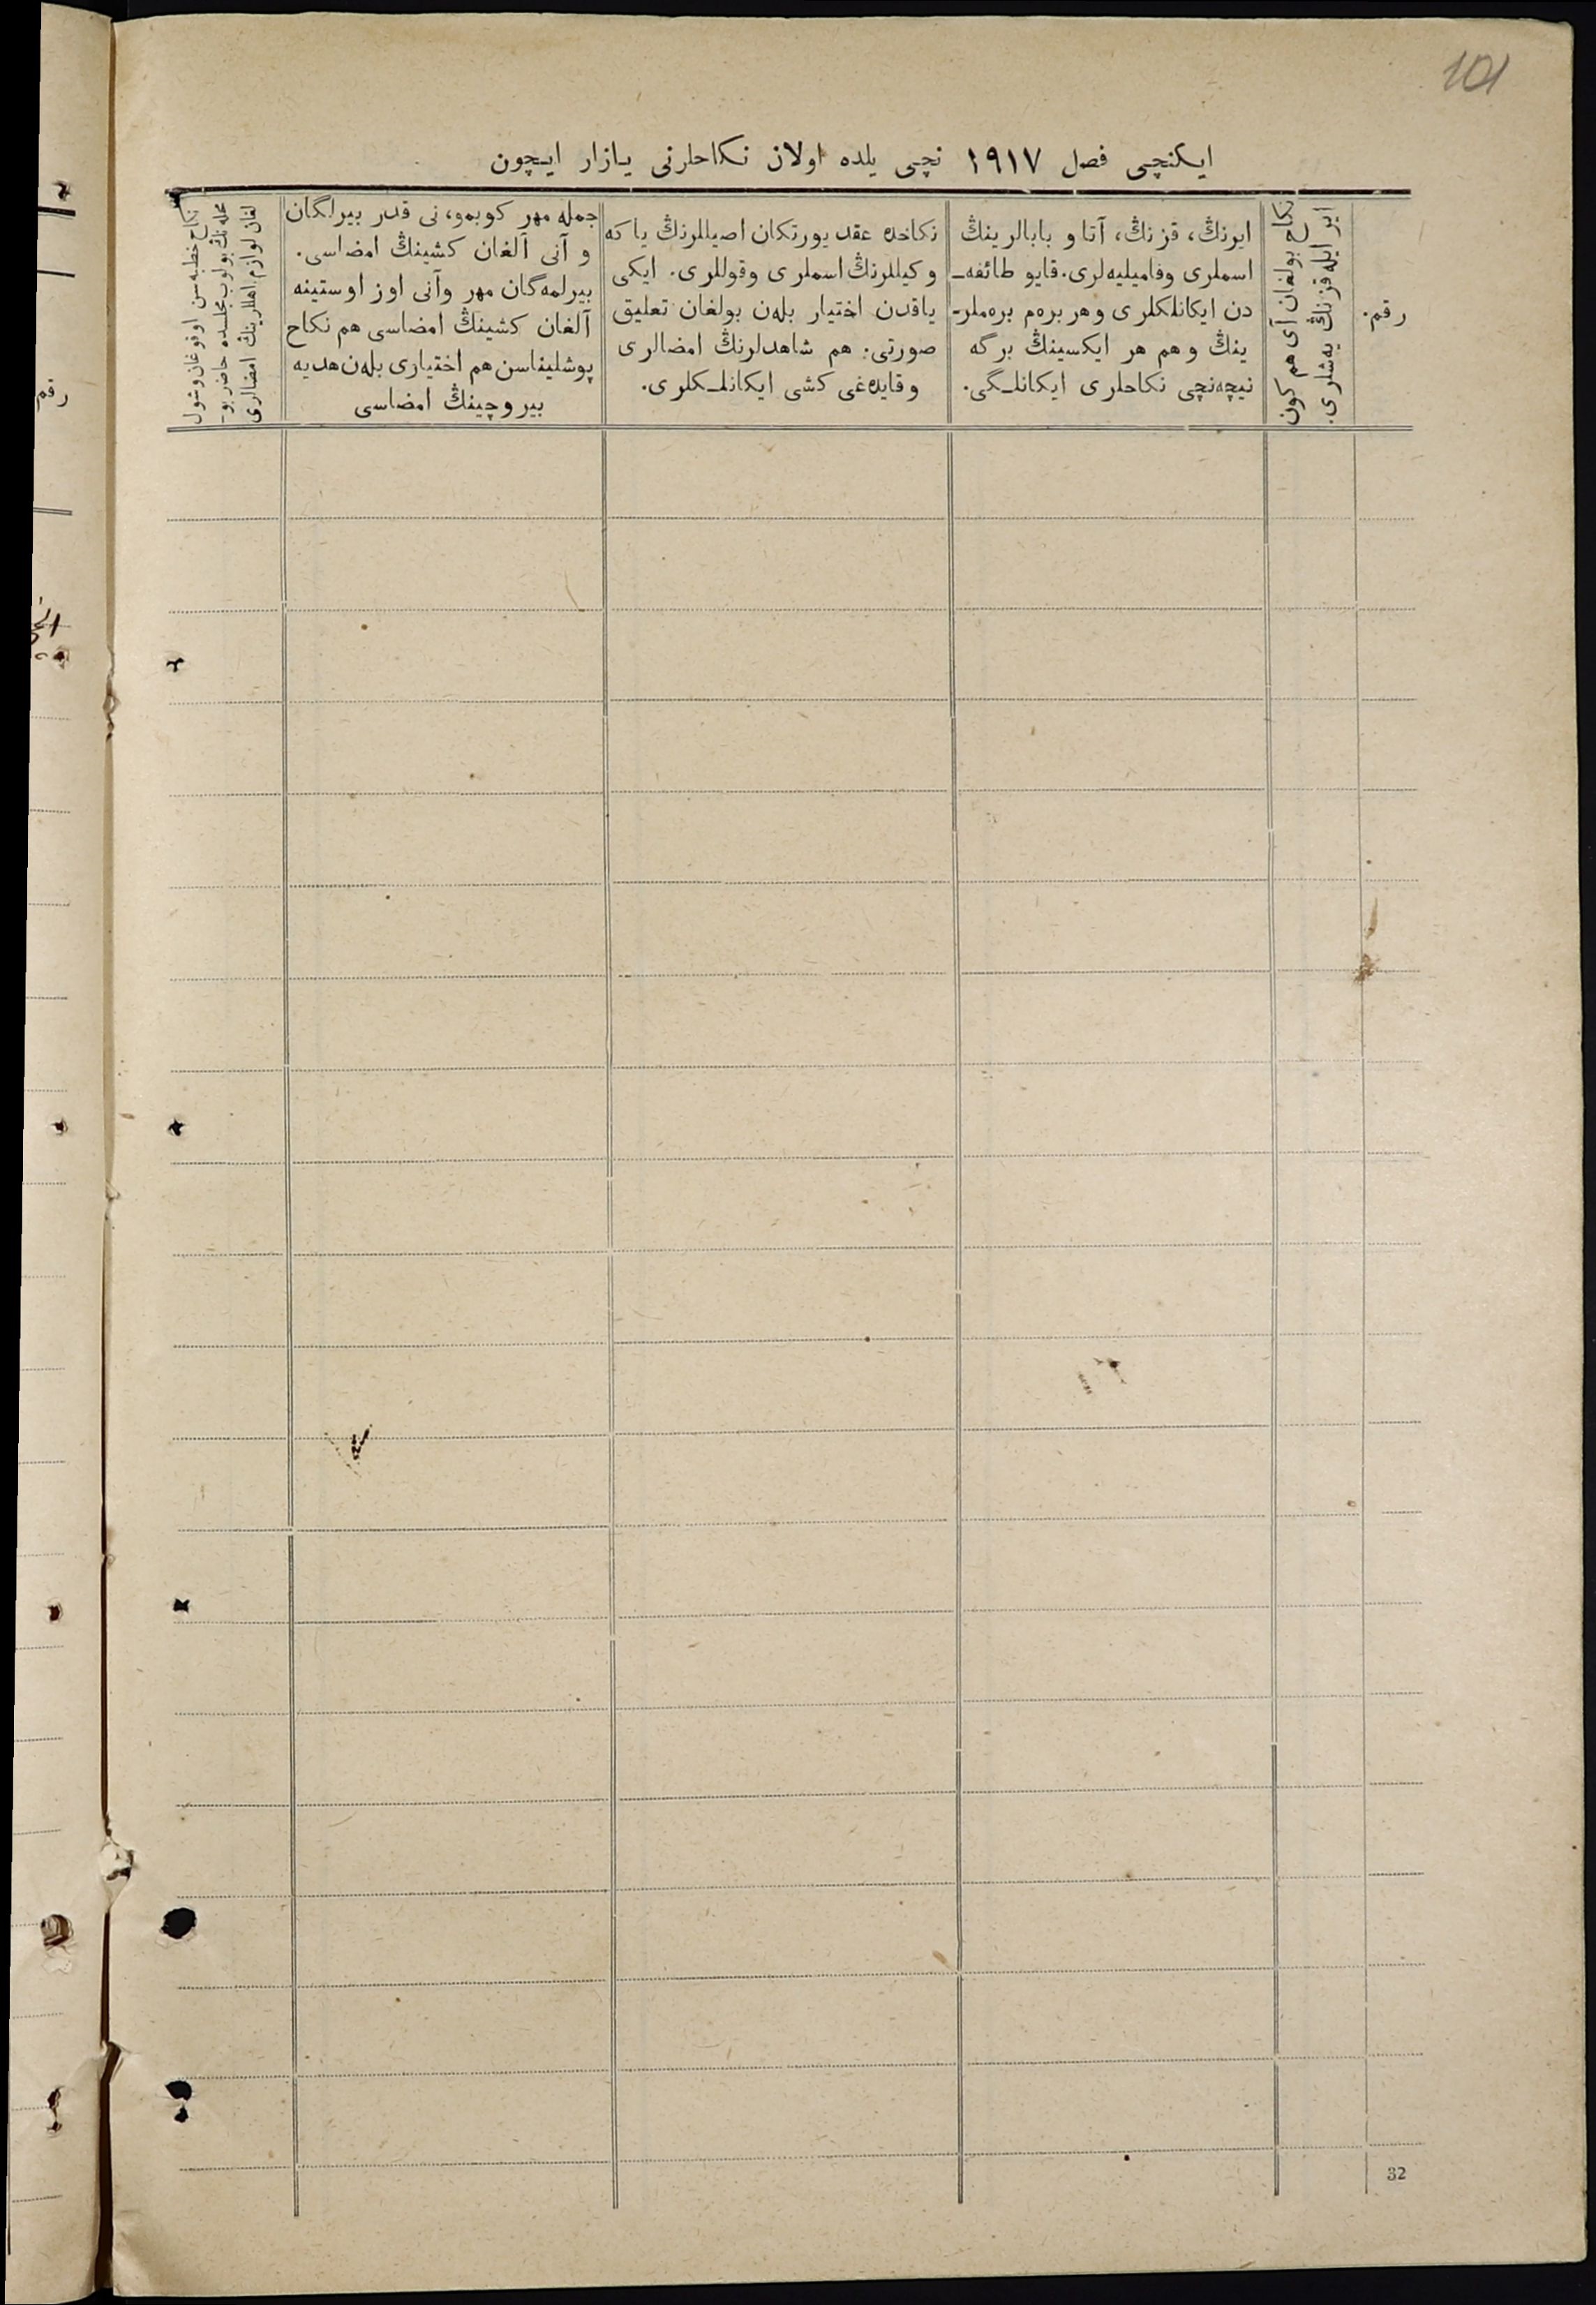 101
ایکنچی فصل ١٩١٧ نچی یلده اولان نکاحلرنی یازار ایچون
رقم.
نکاح بولغان آی هم کون
ایر ایله قزنڭ یه‌شلری.
ایرنڭ، قزنڭ، آتا و بابالرینڭ
اسملری وفامیلیه‌لری. قایو طائفه‌ـ
دن ایکانلکلری و هر بره‌م بره‌ملرـ
ینڭ و هم هر ایکسینڭ برگه
نیچه‌نچی نکاحلری ایکانلـگی.
نکاحده عقد یورتکان اصیللرنڭ یا که
وکیللرنڭ اسملری وقوللری. ایکی
یاقدن اختیار بله‌ن بولغان تعلیق
صورتی. هم شاهدلرنڭ امضالری
وقایده‌غی کشی ایکانلـکلری.
جمله مهر کوبمو، نی قدر بیرلگان
و آنی آلغان کشینڭ امضاسی.
بیرلمه‌گان مهر وآنی اوز اوستینه
آلغان کشینڭ امضاسی هم نکاح
پوشلیناسن هم اختیاری بله‌ن هدیه
بیروچینڭ امضاسی
نکاح خطبه‌سن اوقوغان وشول
محله‌نڭ بولوب مجلسده حاضر بوـ
لغان لوازم اهللرینڭ امضالری
رقم
32